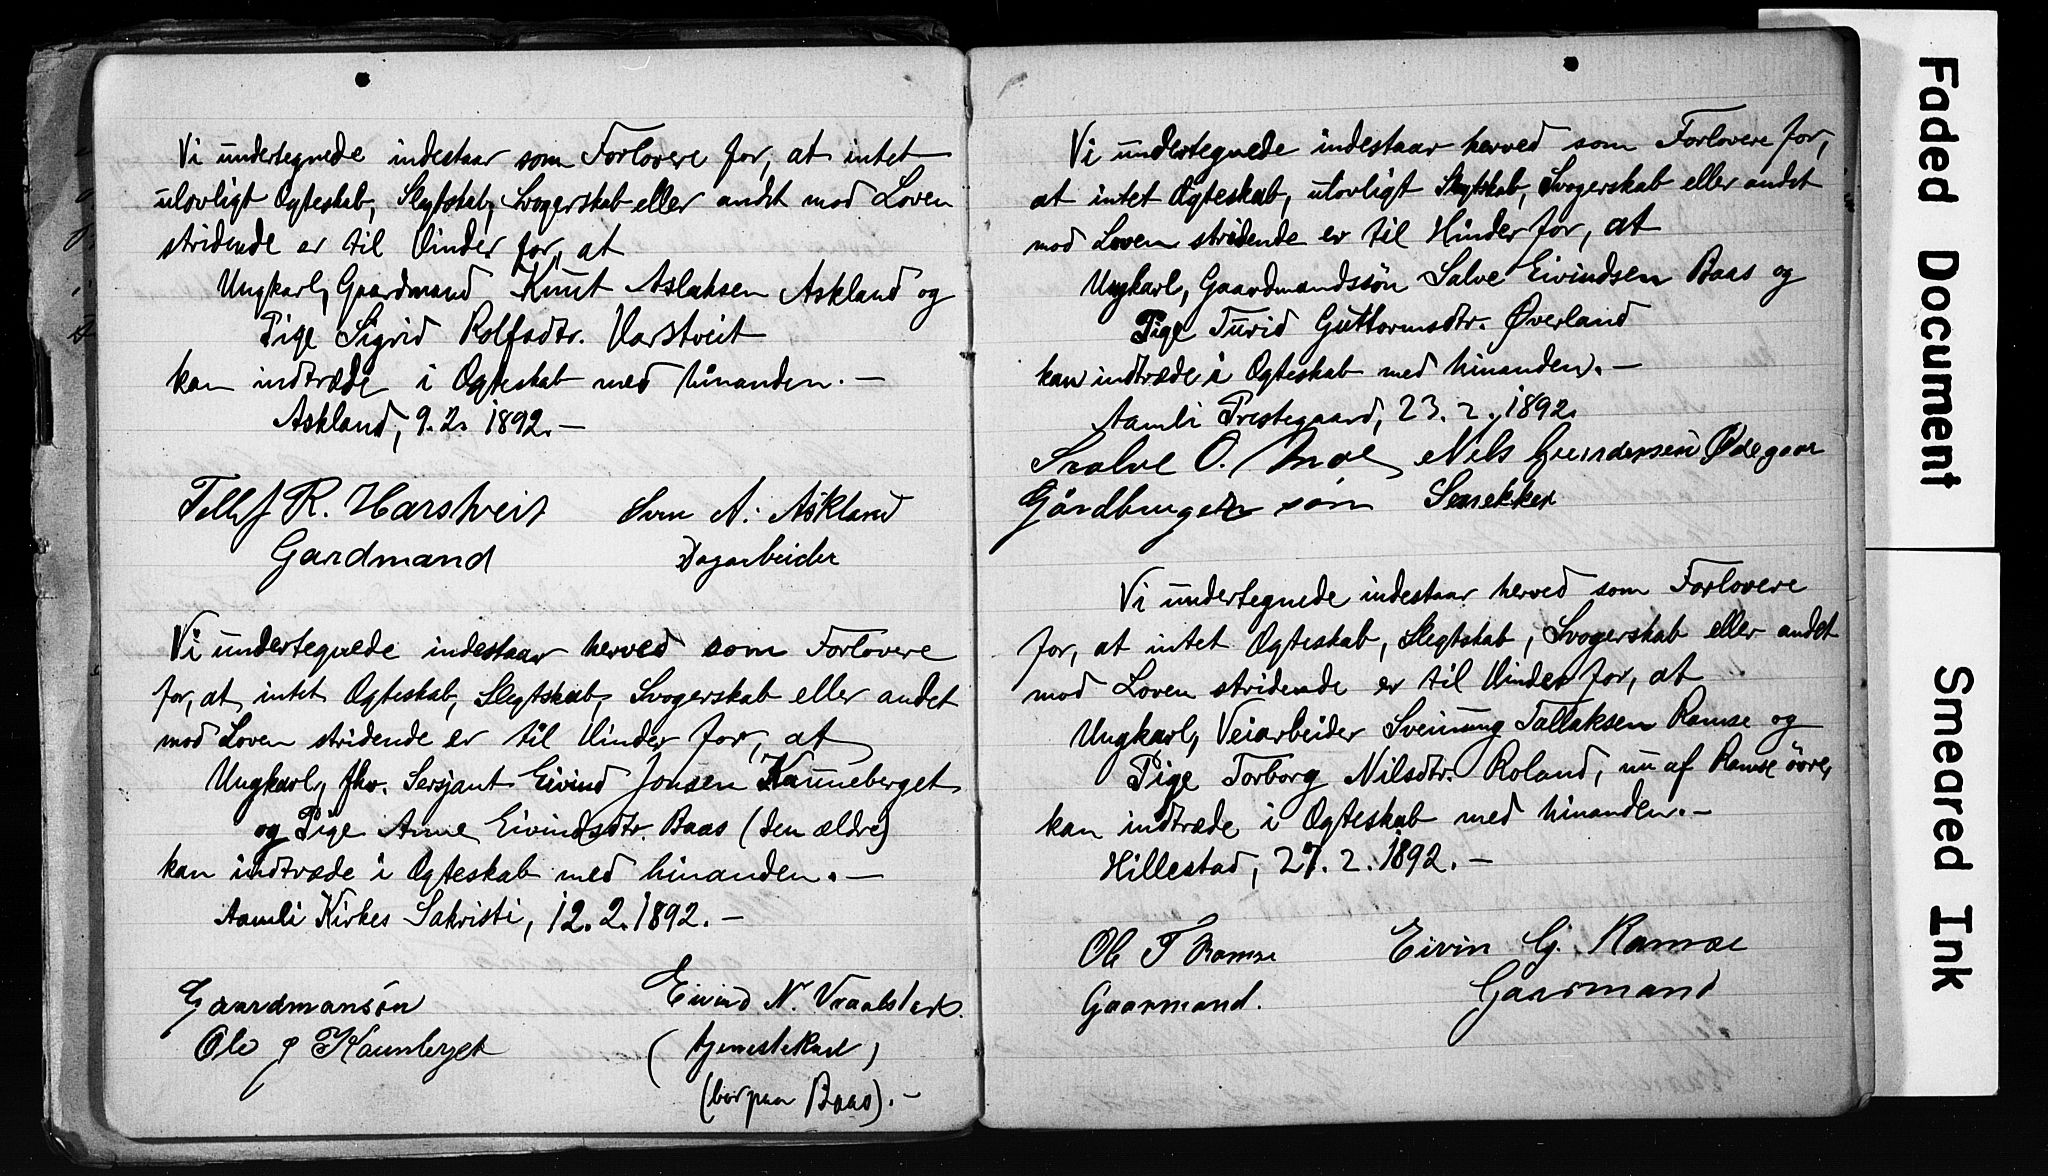 Vi undertegnede indestaar som Forlovere for, at intet
ulovligt Ægteskab, Slegtskab, Svogerskab eller andet mod Loven
stridende er til Hinder for, at
Ungkarl, Gaardmand Knut Aslaksen Askland og
Pige Sigrid Rolfsdtr. Harstveit
kan indtræde i Ægteskab med hinanden. —
Askland, 9.2. 1892. —
Tellef R. Harstveit Sven A. Askland
Gardmand Dagarbeider
Vi undertegnede indestaar herved som Forlovere
for, at intet Ægteskab, Slegtskab, Svogerskab eller andet
mod Loven stridende er til Hinder for, at
Ungkarl, fhv. Sersjant Eivind Jonsen Kauneberget
og Pige Anne Eivindsdtr. Baas (den ældre)
kan indtræde i Ægteskab med hinanden. —
Aamli Kirkes Sakristi, 12.2.1892. —
Gaardmansøn Eivind N. Vraalstad.
Ole J Kaunberget (tjenestekarl)
(bor paa Baas). —
Vi undertegnede indestaar herved som Forlovere for,
at intet Ægteskab, ulovligt Slegtskab, Svogerskab eller andet
mod Loven stridende er til Hinder for, at
Ungkarl, Gaardmandssøn Salve Eivindsen Baas og
Pige Turid Guttormsdtr. Øverland
kan indtræde i Ægteskab med hinanden. —
Aamli Prestegaard, 23.2.1892.
Salve O. Moe Nils Gundersen Ødegaar
Gårdbruger søn Snekker
Vi undertegnede indestaar herved som Forlovere
for, at intet Ægteskab, Slegtskab, Svogerskab eller andet
mod Loven stridende er til Hinder for, at
Ungkarl, Veiarbeider Sveinung Tallaksen Ramse og
Pige Torborg Nilsdtr. Roland, nu af Ramse øvre,
kan indtræde i Ægteskab med hinanden. —
Hillestad, 27.2.1892. —
Ole T Ramse Eivin G. Ramse
Gaarmand. Gaarmand
Faded Document
Smeared Ink